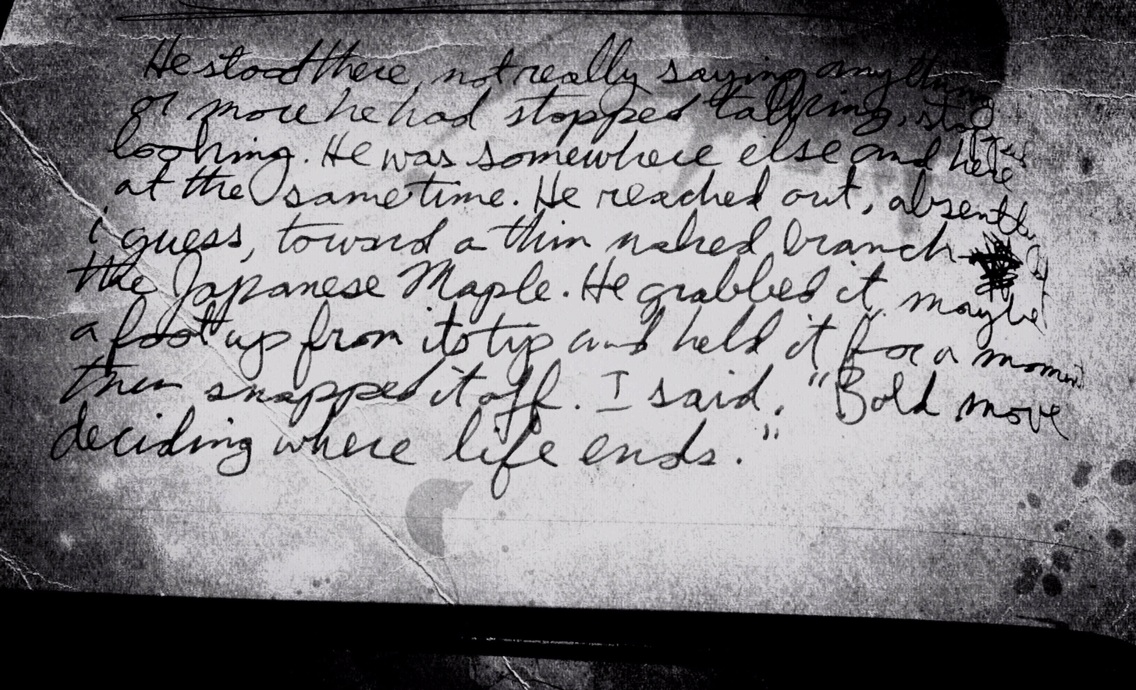 He stood there, not really saying anything
or more he had stopped talking, stopped
looking. He was somewhere else and here
at the same time. He reached out, absently
i guess, toward a thin naked branch of
the Japanese Maple. He grabbed it maybe
a foot up from its tip and held it for a moment
then snapped it off. I said, "Bold move
deciding where life ends."